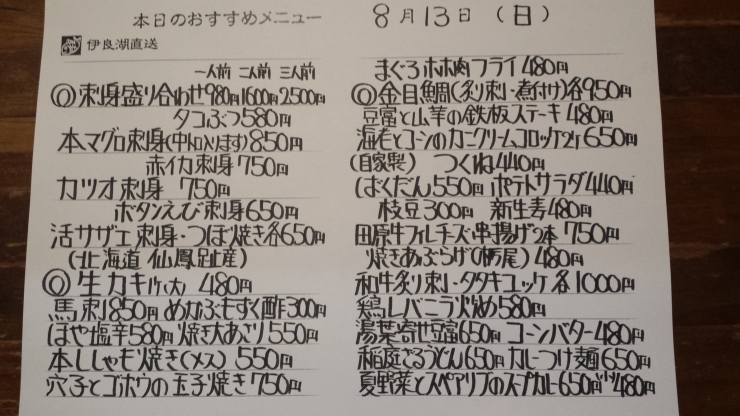 本日のおすすめメニュー 8月13日(日)
伊良湖直送
一人前 二人前 三人前
◎刺身盛り合わせ980円1600円2500円
タコぶつ580円
本マグロ刺身(中トロ入ります)850円
赤イカ刺身750円
カツオ刺身 750円
ボタンえび刺身650円
活サザエ刺身・つぼ焼き各650円
(北海道 仙鳳趾産)
◎生カキ1ケ(大) 480円
馬刺850円 めかぶもずく酢300円
ほや塩辛580円 焼き大あさり550円
本ししゃも焼き(メス) 550円
穴子とゴボウの玉子焼き750円
まぐろホホ肉フライ480円
◎金目鯛(炙り刺し・煮付け)各950円
豆富と山芋の鉄板ステーキ480円
海老とコーンのカニクリームコロッケ2ケ650円
(自家製) つくね440円
ばくだん550円 ポテトサラダ440円
枝豆300円 新生姜480円
田原牛フィレチーズ・串揚げ2本 750円
焼きあぶらげ(栃尾) 480円
和牛炙り刺し・タタキユッケ各1000円
鶏レバニラ炒め580円
湯葉寄せ豆富650円 コーンバター480円
稲庭ざるうどん650円 カレーつけ麺650円
夏野菜とスペアリブのスープカレー650円 480円